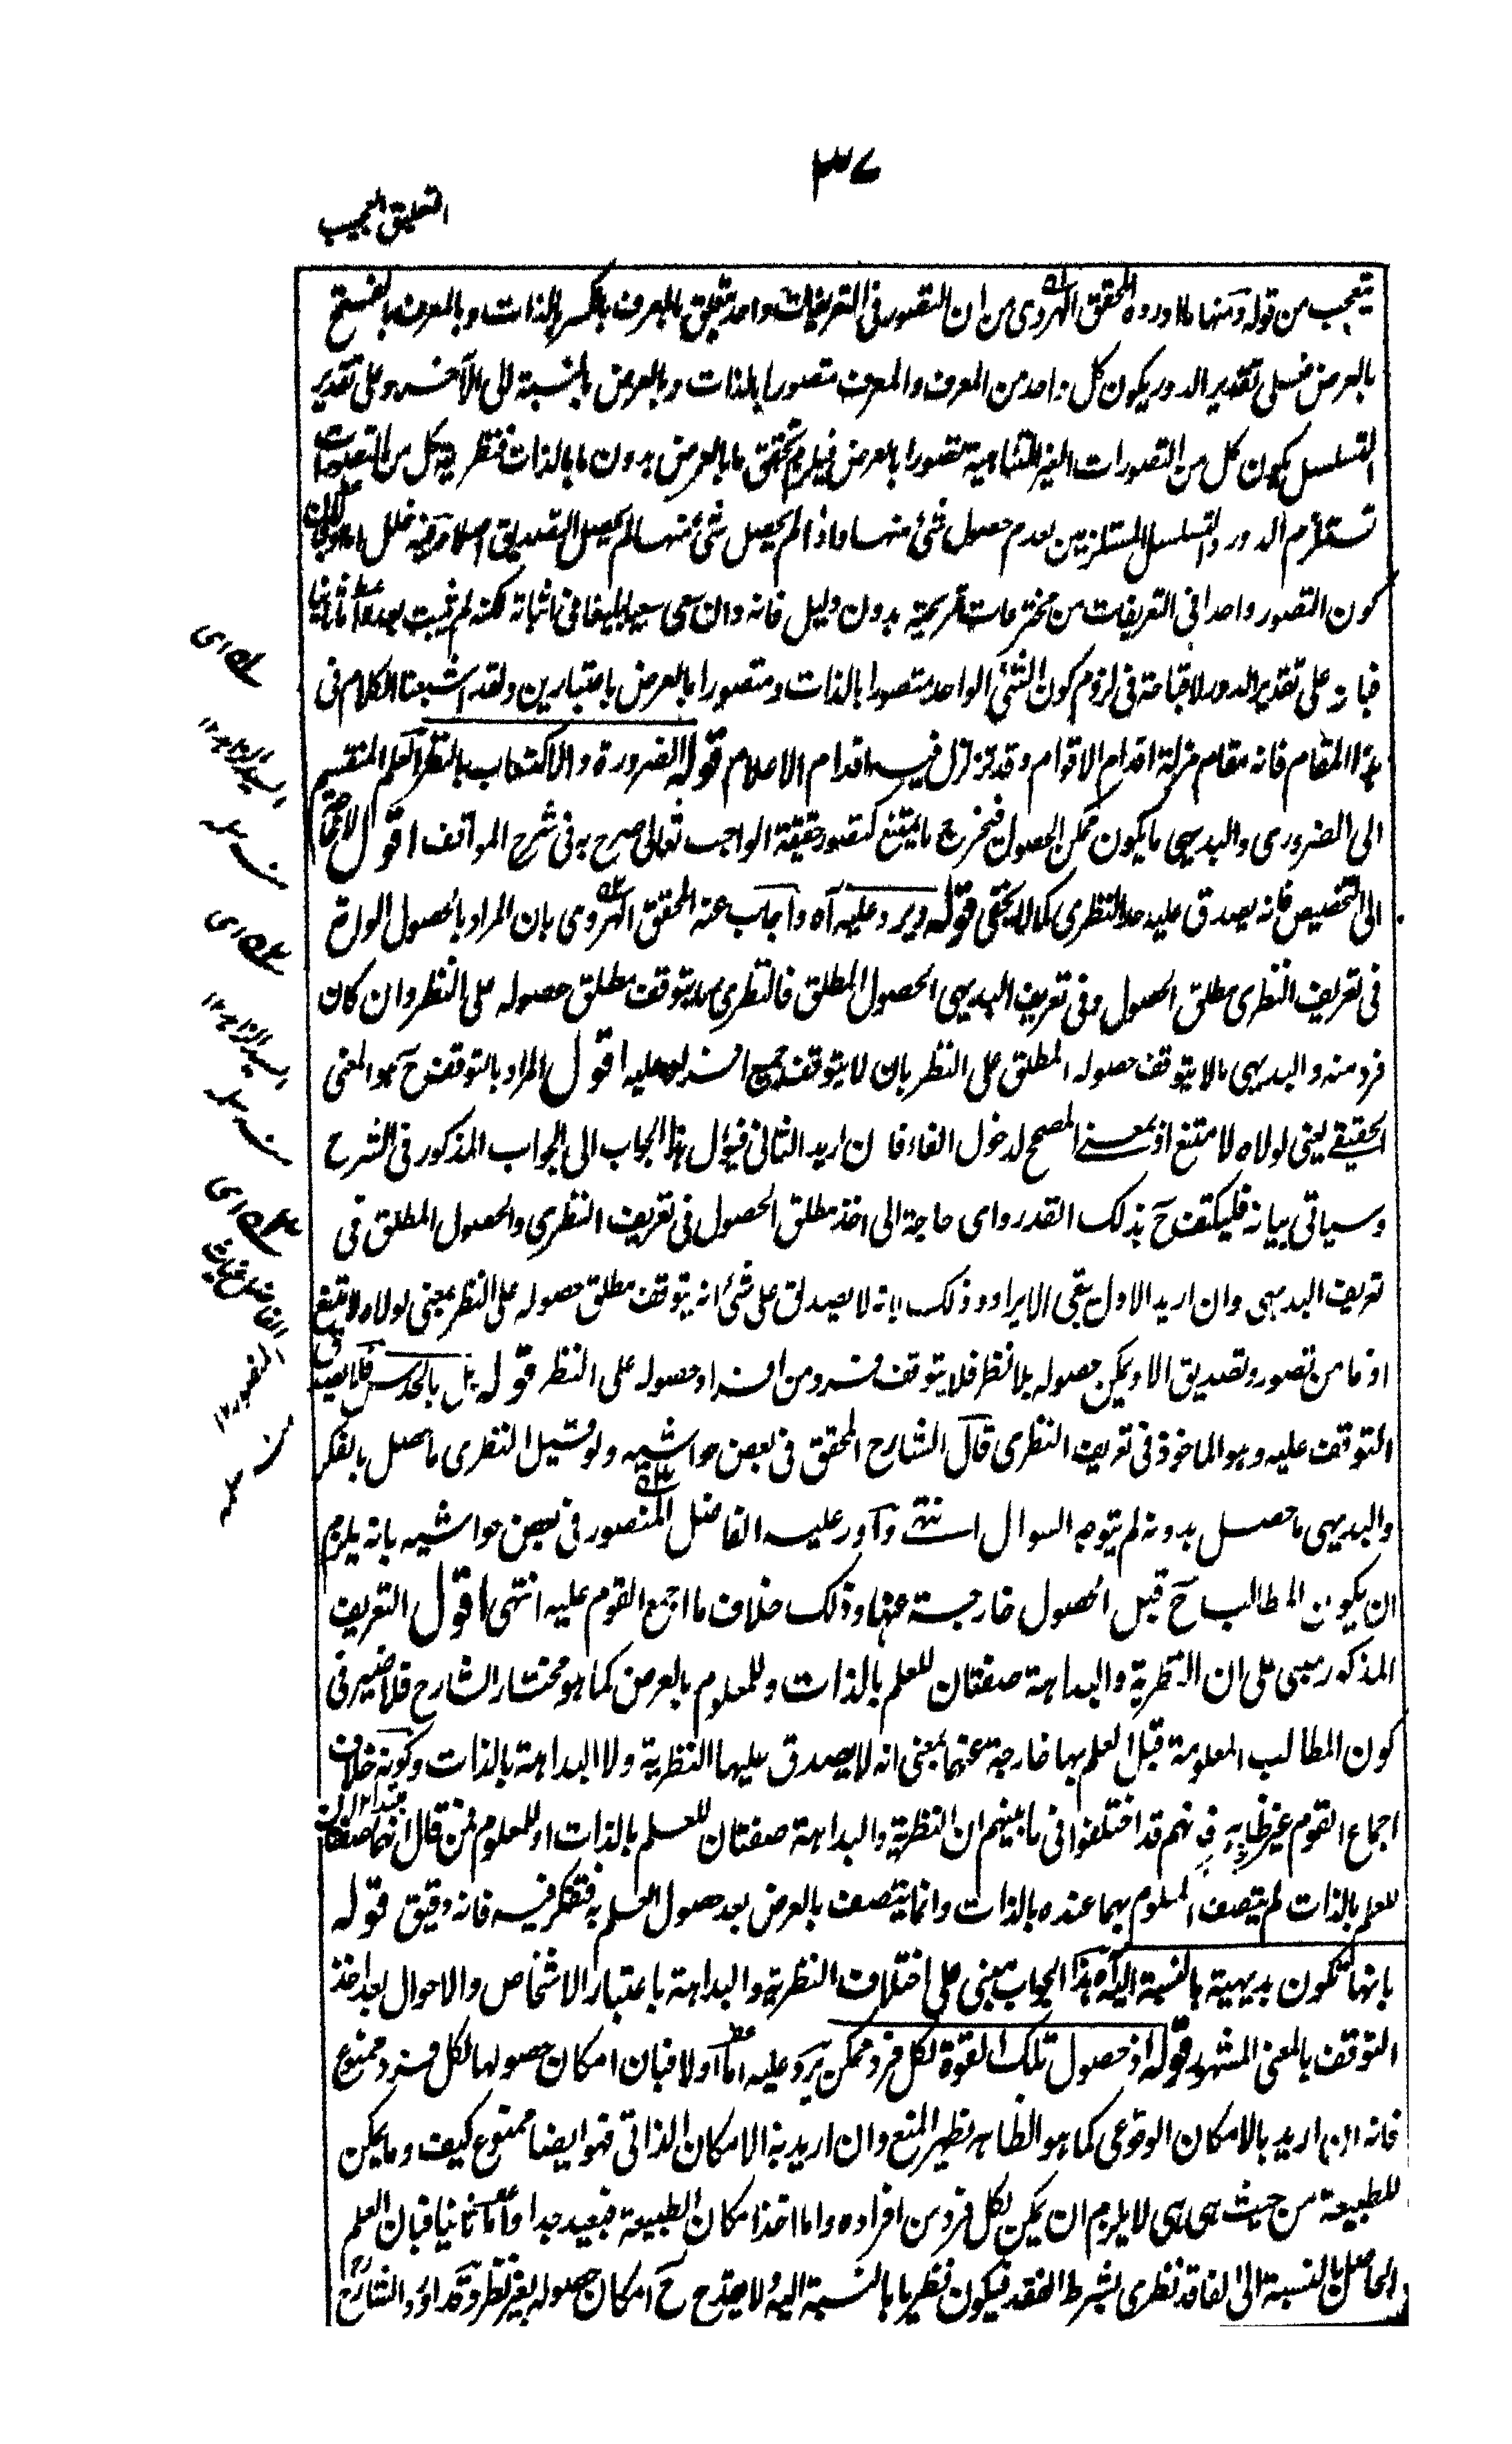 ٣٧
التعليق العجيب
يتعجب من قوله ومنها ما اورده المحقق الهروى من ان التصور فى التعريفات واحد يتعلق بالمعرف بالكسر بالذات وبالمعرف بالفتح
بالعرض فعلى تقدير الدور يكون كل واحد من المعرف والمعرف متصورا بالذات وبالعرض بالنسبة الى الآخر وعلى تقدير
التسلسل يكون كل من التصورات الغير المتناهية متصورا بالعرض فيلزم تحقق ما بالعرض بدون ما بالذات فنظرية كل من التصورات
تستلزم الدور والتسلسل المستلزمين لعدم حصول شئ منها واذا لم يحصل شئ منها لم يحصل التصديق اصلا وفيه خلل اما اولا فلان
كون التصور واحدا فى التعريفات من مخترعات قريحته بدون دليل فانه وان سعى سعيا بليغا فى اثباته لكنه لم يثبت بعد واما ثانيا
فبانه على تقدير الدور لا قباحة فى لزوم كون الشئ الواحد متصورا بالذات ومتصورا بالعرض باعتبارين ولقد اشبعنا الكلام فى
هذا المقام فانه مقام مزلة اقدام الاقوام وقد تزلزل فيه اقدام الاعلام قوله الضرورة والاكتساب بالنظر العلم المنقسم
الى الضرورى والبديهى ما يكون ممكن الحصول فخرج ما يمتنع كتصور حقيقة الواجب تعالى صرح به فى شرح المواقف اقول لا حاجة
الى التخصيص فانه يصدق عليه حد النظرى كما لا يخفى قوله ويرد عليه آه واجاب عنه المحقق الهروى بان المراد بالحصول الواقع
فى تعريف النظرى مطلق الحصول وفى تعريف البديهى الحصول المطلق فالنظرى ما يتوقف مطلق حصوله على النظر وان كان
فرد منه والبديهى ما لا يتوقف حصوله المطلق على النظر بان لا يتوقف جميع افراده عليه اقول المراد بالتوقف ح هو المعنى
الحقيقے يعنى لولاه لامتنع او بمعنى المصحح لدخول الفاء فان اريد الثانى فيؤل هذا الجواب الى الجواب المذكور فى الشرح
وسياتى بيانه فليكتف ح بذلك القدر واى حاجة الى اخذ مطلق الحصول فى تعريف النظرى والحصول المطلق فى
تعريف البديهى وان اريد الاول يبقى الايراد وذلك لانه لا يصدق على شئ انه يتوقف مطلق حصوله على النظر بمعنى لولاه لامتنع
اذ ما من تصور وتصديق الا ويمكن حصوله بلا نظر فلا يتوقف فرد من افراد حصوله على النظر قوله بل بالحدس فلا يصدق
التوقف عليه وهو الماخوذ فى تعريف النظرى قال الشارح المحقق فى بعض حواشيه ولو قيل النظرى ما حصل بالفكر
والبديهى ما حصل بدونه لم يتوجه السوال انتهى واورد عليه الفاضل المنصور فى بعض حواشيه بانه يلزم
ان يكون المطالب ح قبل الحصول خارجة عنها وذلك خلاف ما اجمع القوم عليه انتهى اقول التعريف
المذكور مبنى على ان النظرية والبداهة صفتان للعلم بالذات وللمعلوم بالعرض كما هو مختار الشارح فلا ضير فى
كون المطالب المعلومة قبل العلم بها خارجة عنهما بمعنى انه لا يصدق عليها النظرية ولا البداهة بالذات وكونه خلاف
اجماع القوم غير ظاهر فانهم قد اختلفوا فى ما بينهم ان النظرية والبداهة صفتان للعلم بالذات او للمعلوم فمن قال انهما صفتان
للعلم بالذات لم يتصف المعلوم بهما عنده بالذات وانما يتصف بالعرض بعد حصول العلم به فتفكر فيه فانه دقيق قوله
بانها تكون بديهية بالنسبة اليه آه هذا الجواب مبنى على اختلاف النظرية والبداهة باعتبار الاشخاص والاحوال بعد اخذ
التوقف بالمعنى المشهور قوله اذ حصول تلك القوة لكل فرد ممكن يرد عليه اما اولا فبان امكان حصولها لكل فرد ممنوع
فانه ان اريد بالامكان الوقوعى كما هو الظاهر نظهر المنع وان اريد به الامكان الذاتى فهو ايضا ممنوع كيف وما يمكن
للطبيعة من حيث هى هى لا يلزم ان يمكن لكل فرد من افراده واما اخذ امكان الطبيعة فبعيد جدا واما ثانيا فبان العلم
الحاصل بالنسبة الى الفاقد نظرى بشرط الفقد فيكون نظريا بالنسبة اليه ولا يقدح ح امكان حصوله بغير نظر وقد اورد الشارح
اى
السيد الزاهد ١٢
منه
اى
السيد الزاهد ١٢
منه
اى
الفاضل غياث
المنصور ١٢
منه